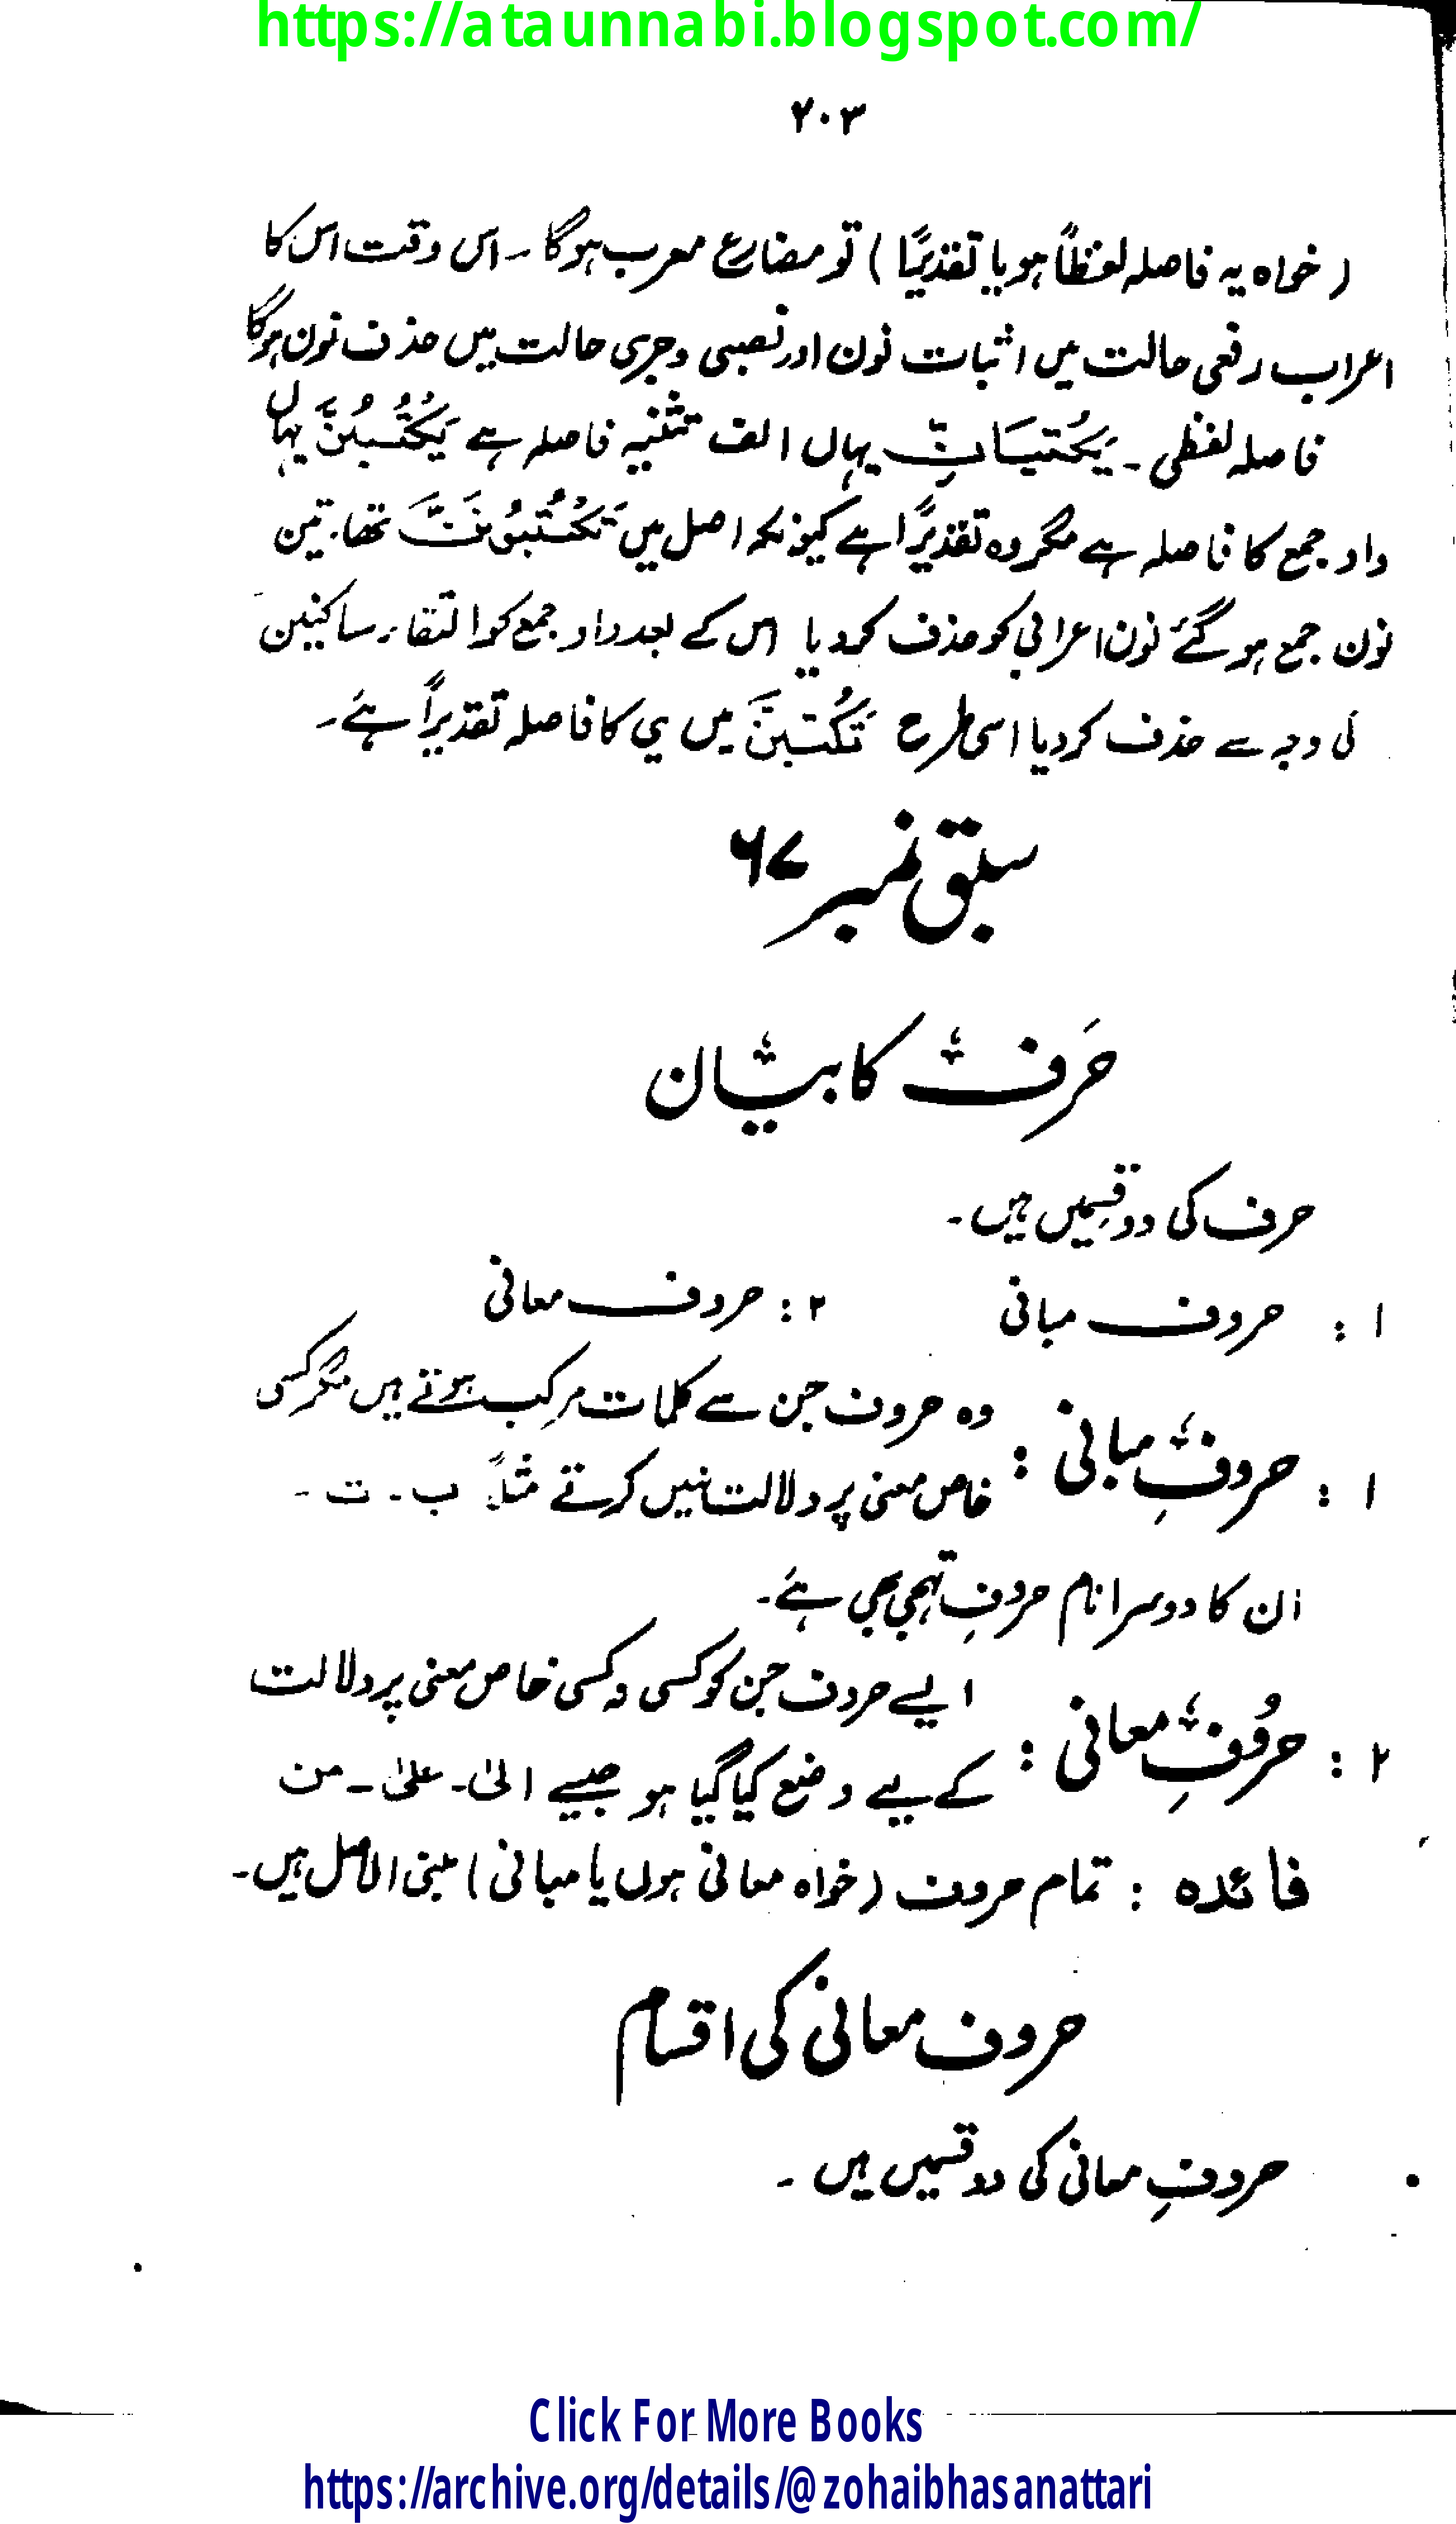 https://ataunnabi.blogspot.com/
۲۰۳
(خواہ یہ فاصلہ لفظاً ہو یا تقدیرًا) تو مضارع معرب ہوگا ۔ اس وقت اس کا
اعراب رفعی حالت میں اثبات نون اور نصبی وجزمی حالت میں حذف نون ہوگا
فاصلہ لفظی ۔ یَکْتُبَانِّ یہاں الف تثنیہ فاصلہ ہے یَکْتُبُنَّ یہاں
واو جمع کا فاصلہ ہے مگر وہ تقدیرًا ہے کیونکہ اصل میں تَکْتُبُوْنَنَّ تھا۔ تین
نون جمع ہو گئے نون اعرابی کو حذف کر دیا اس کے بعد واو جمع کو التقاء ساکنین
کی وجہ سے حذف کر دیا اسی طرح تَکْتُبِنَّ میں ی کا فاصلہ تقدیراً ہے۔
سبق نمبر ۶۷
حَرف کا بیان
حرف کی دو قسمیں ہیں۔
۱ : حروف مبانی ۲ : حروف معانی
۱ : حروفِ مبانی : وہ حروف جن سے کلمات مرکب ہوتے ہیں مگر کسی
خاص معنی پر دلالت نہیں کرتے مثلاً ب۔ ت ۔
ان کا دوسرا نام حروفِ تہجی بھی ہے۔
۲ : حروُفِ معانی : ایسے حروف جن کو کسی نہ کسی خاص معنی پر دلالت
کے لیے وضع کیا گیا ہو جیسے الیٰ۔ علیٰ ۔ من
فائدہ : تمام حروف (خواہ معانی ہوں یا مبانی) مبنی الاصل ہیں۔
حروف معانی کی اقسام
حروفِ معانی کی دو قسمیں ہیں ۔
Click For More Books
https://archive.org/details/@zohaibhasanattari